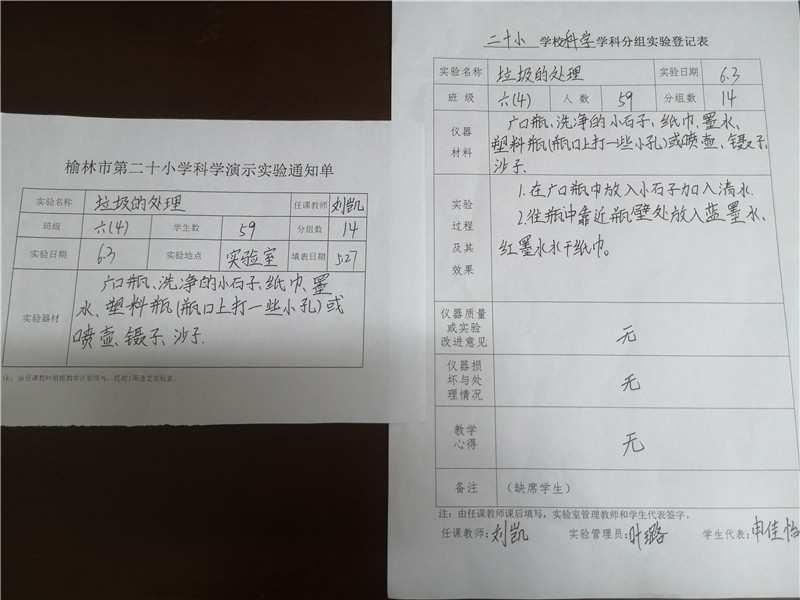 榆林市第二十小学科学演示实验通知单
实验名称 垃圾的处理 任课教师 刘凯
班级 六(4) 学生数 59 分组数 14
实验日期 6.3 实验地点 实验室 填表日期 5.27
实验器材 广口瓶、洗净的小石子、纸巾、墨
水、塑料瓶(瓶口上打一些小孔)或
喷壶、镊子、沙子.
注：由任课教师根据教学计划填写，提前3周送交实验室。
二十小 学校科学学科分组实验登记表
实验名称 垃圾的处理 实验日期 6.3
班 级 六(4) 人 数 59 分组数 14
仪器
材料
广口瓶、洗净的小石子、纸巾、墨水、
塑料瓶(瓶口上打一些小孔)或喷壶、镊子、
沙子.
实验
过程
及其
效果
1.在广口瓶中放入小石子加入清水.
2.往瓶中靠近瓶壁处放入蓝墨水、
红墨水水于纸巾。
仪器质量
或实验
改进意见
无
仪器损
坏与处
理情况
无
教学
心得
无
备注 （缺席学生）
注：由任课教师课后填写，实验室管理教师和学生代表签字。
任课教师:刘凯 实验管理员:叶璐 学生代表:申佳怡